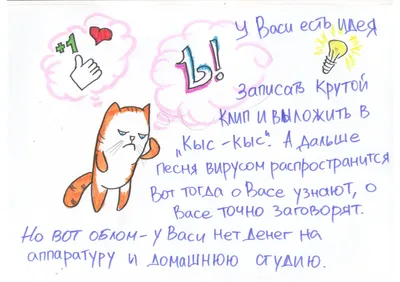 +1
Ъ!
У Васи есть идея
Записать крутой
клип и выложить в
„Кыс-Кыс". А дальше
песня вирусом распространится
Вот тогда о Васе узнают, о
Васе точно заговорят.
Но вот облом - у Васи нет денег на
аппаратуру и домашнюю студию.